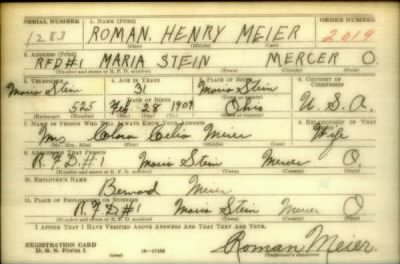 SERIAL NUMBER 1. NAME (Print) ORDER NUMBER
1283 ROMAN. HENRY MEIER 2019
(First) (Middle) (Last)
2. ADDRESS (Print)
RFD#1 MARIA STEIN MERCER O.
(Number and street or R. F. D. number) (Town) (County) (State)
3. TELEPHONE 4. AGE IN YEARS 5. PLACE OF BIRTH 6. COUNTRY OF CITIZENSHIP
Maria Stein 31 Maria Stein
DATE OF BIRTH
525 Feb 28 1909 Ohio U.S.A.
(Exchange) (Number) (Mo.) (Day) (Yr.) (State or country)
7. NAME OF PERSON WHO WILL ALWAYS KNOW YOUR ADDRESS 8. RELATIONSHIP OF THAT PERSON
Mrs Clara Celia Meier Wife
(Mr., Mrs., Miss) (First) (Middle) (Last)
9. ADDRESS OF THAT PERSON
R.F.D.#1 Maria Stein Mercer O.
(Number and street or R. F. D. number) (Town) (County) (State)
10. EMPLOYER'S NAME
Bernard Meier
11. PLACE OF EMPLOYMENT OR BUSINESS
R.F.D#1 Maria Stein Mercer O
(Number and street or R. F. D. number) (Town) (County) (State)
I AFFIRM THAT I HAVE VERIFIED ABOVE ANSWERS AND THAT THEY ARE TRUE.
REGISTRATION CARD
D. S. S. Form 1 (over) 16-17105 Roman Meier.
(Registrant's signature)